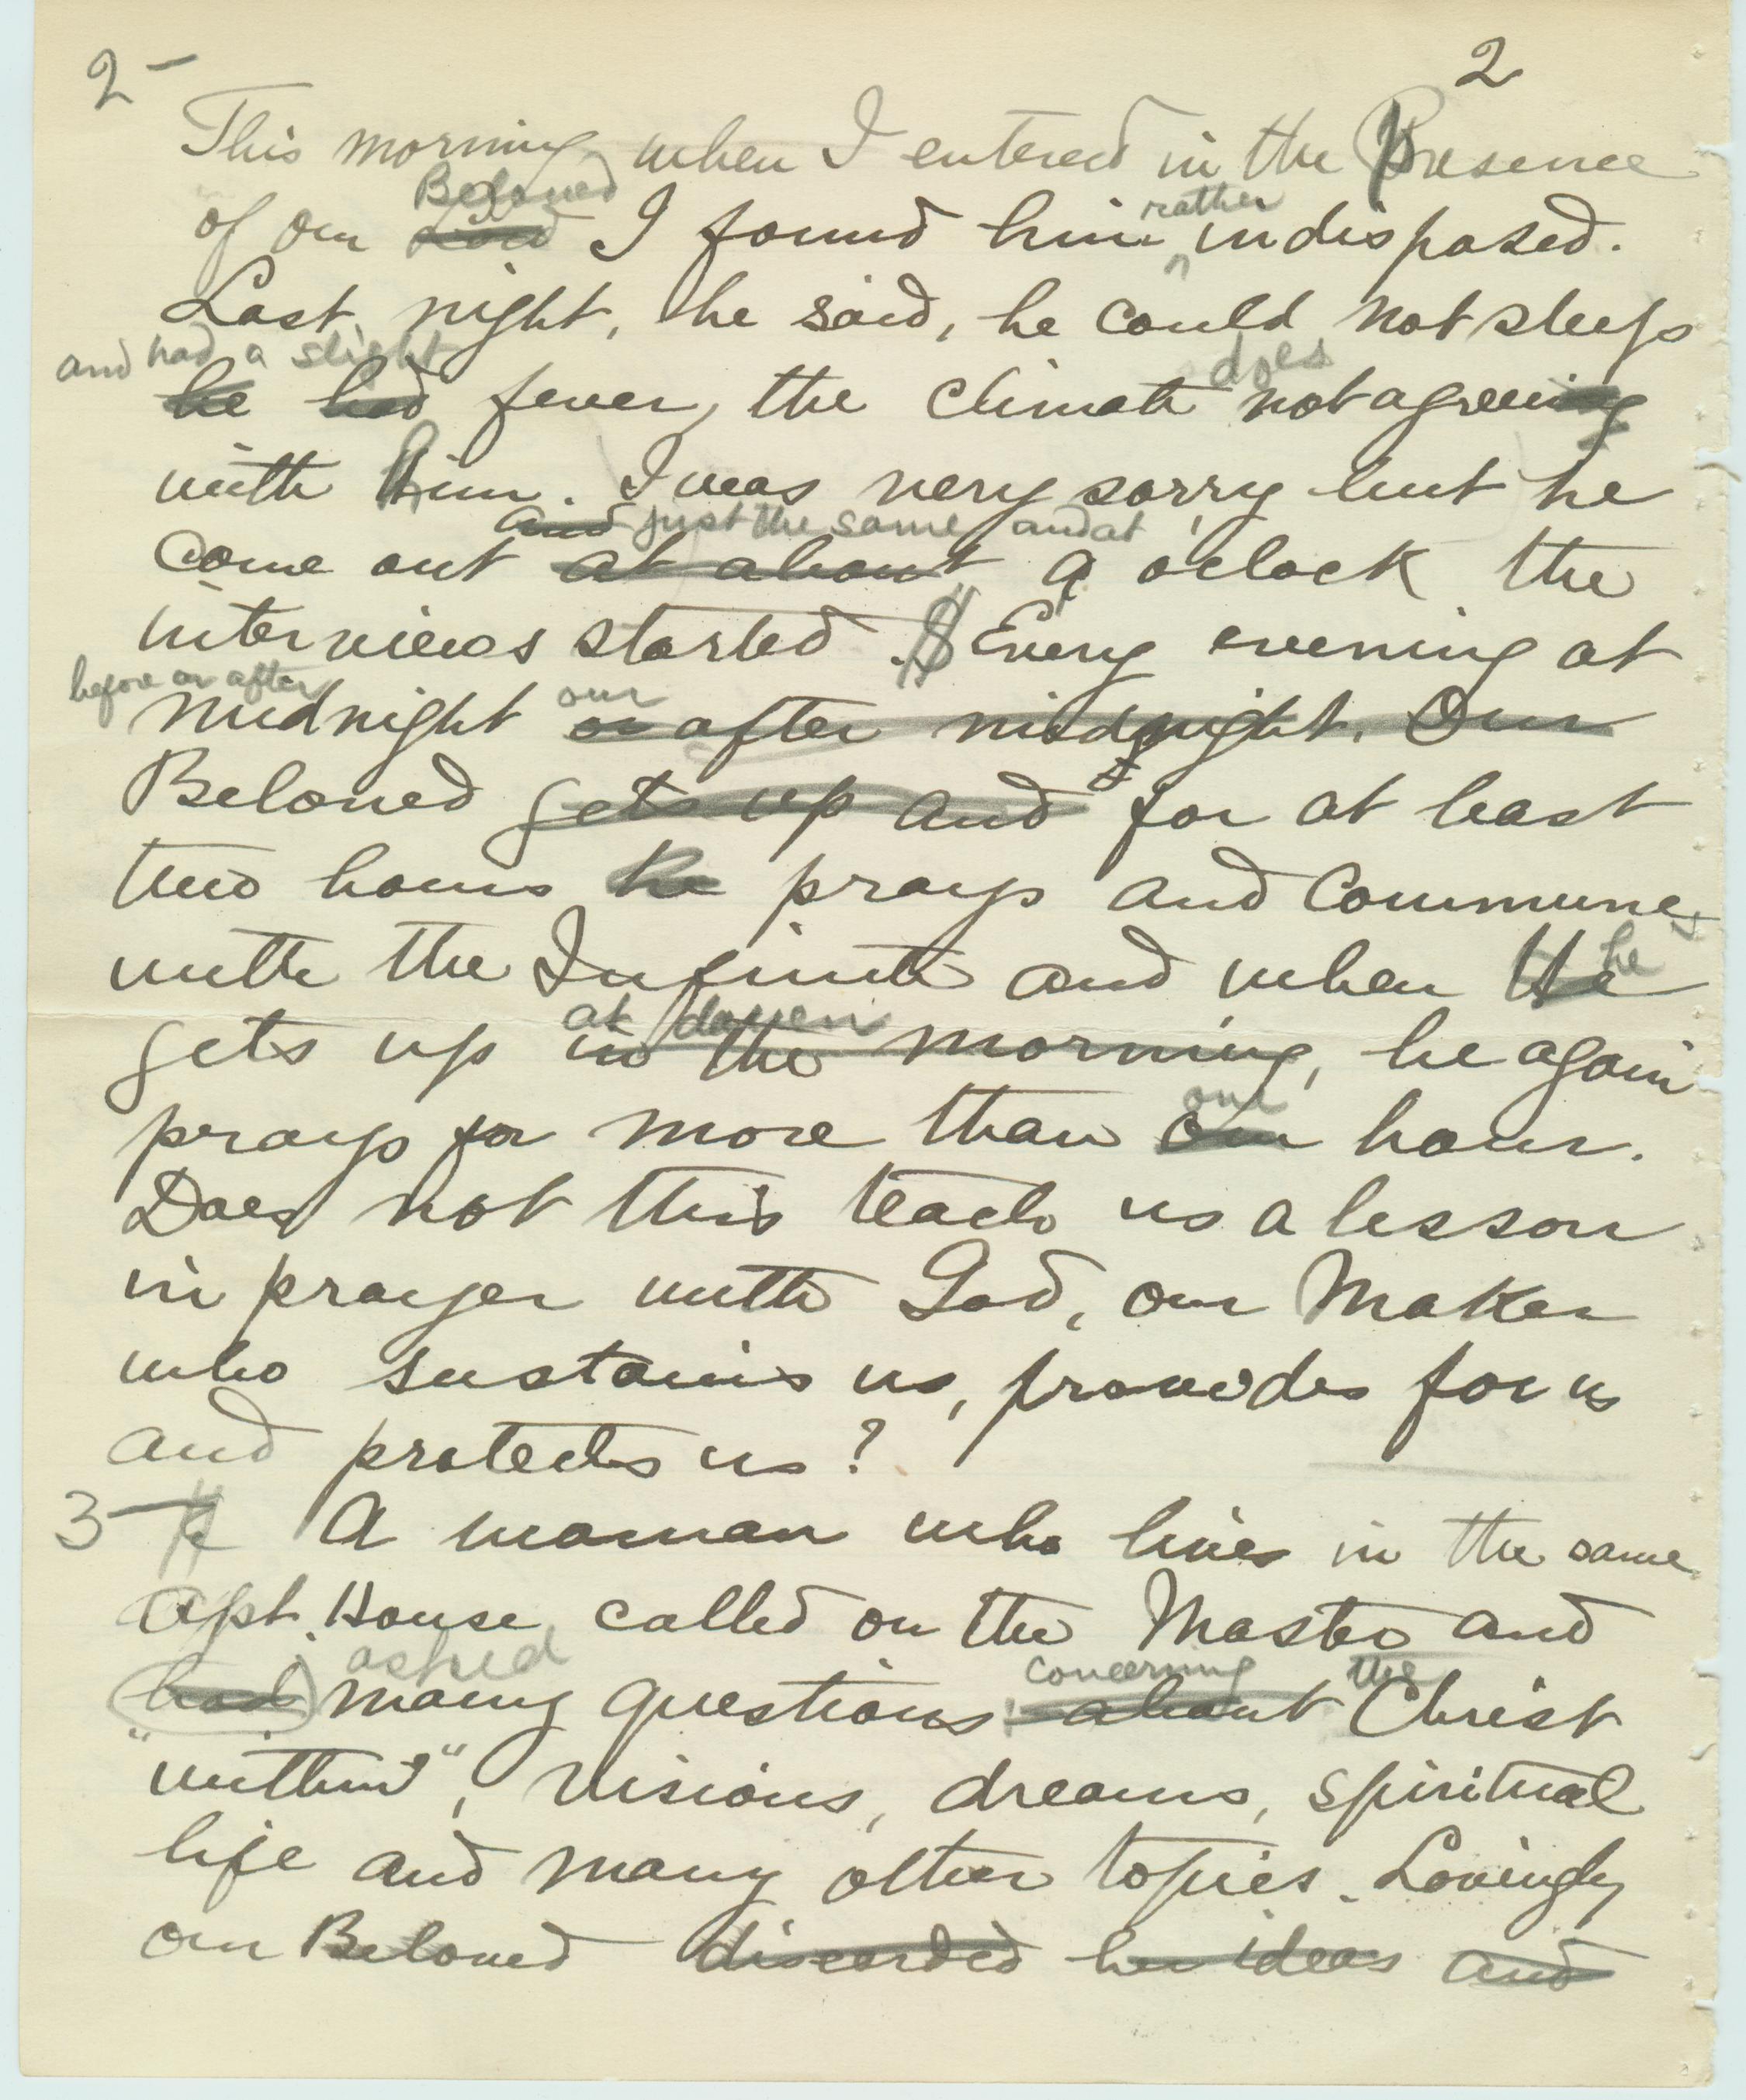 2 – 2
This morning when I entered in the Presence
Beloved rather
of our Lord I found him indisposed.
Last night, he said, he could not sleep
and had a slight does
he had fever, the climate not agreeing
with him. I was very sorry but he
and just the same and at
come out at about 9 o'clock the
interviews started. Every evening at
before or after our
midnight or after midnight. Our
Beloved gets up and for at least
two hours he prays and communes
with the Infinite and when He he
at dawn
gets up in the morning, he again
one
prays for more than our hour.
Does not this teach us a lesson
in prayer with God, our Maker
who sustains us, provides for us
and protects us?
3 – A woman who lives in the same
Apt. House called on the Master and
asked concerning the
had many questions about Christ
"within", visions, dreams, spiritual
life and many other topics. Lovingly
our Beloved discarded her ideas and